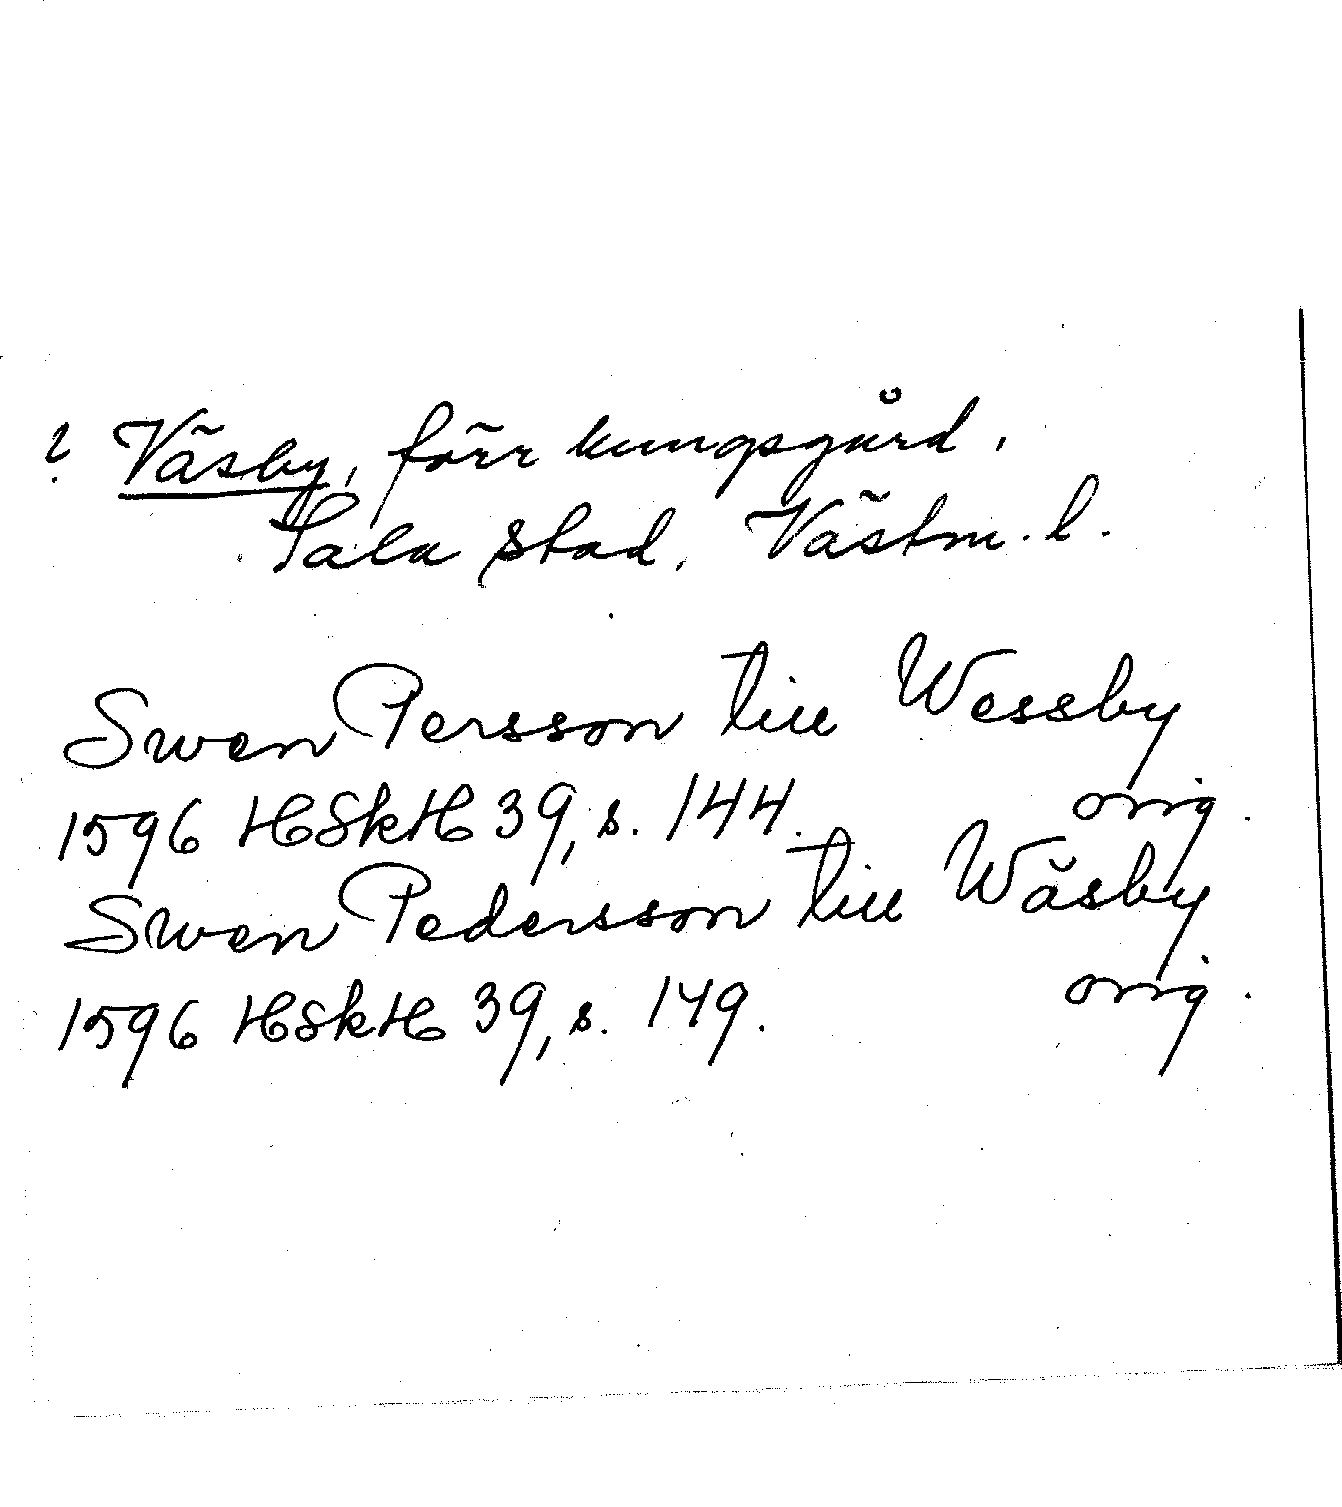 ? Väsby, förr kungsgård,
Sala stad, Västm. l.
Swen Persson till Wessby
1596 HSkH 39, s. 144. orig.
Swen Pedersson till Wäsby
1596 HSkH 39, s. 149. orig.